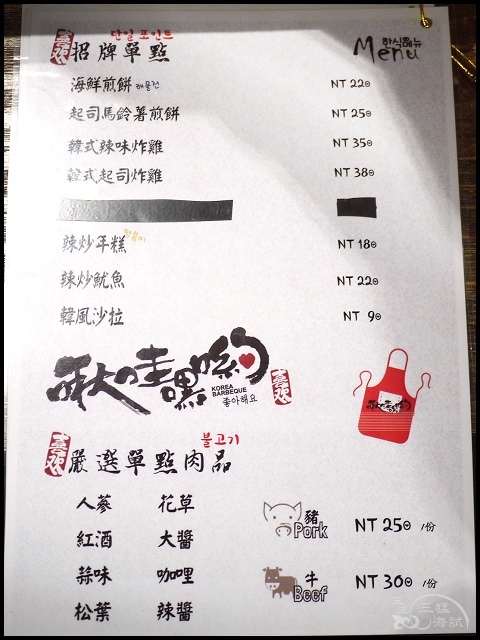 단일 포인트
招牌單點
한식메뉴
Menu
海鮮煎餅 해물전 NT 220
起司馬鈴薯煎餅 NT 250
韓式辣味炸雞 NT 350
韓式起司炸雞 NT 380
辣炒年糕 떡볶이 NT 180
辣炒魷魚 NT 220
韓風沙拉 NT 90
啾哇嘿喲
KOREA
BARBEQUE
좋아해요
불고기
嚴選單點肉品
人蔘 花草
紅酒 大醬
蒜味 咖哩
松葉 辣醬
豬 Pork NT 250 /份
牛 Beef NT 300 /份
三猛
海試